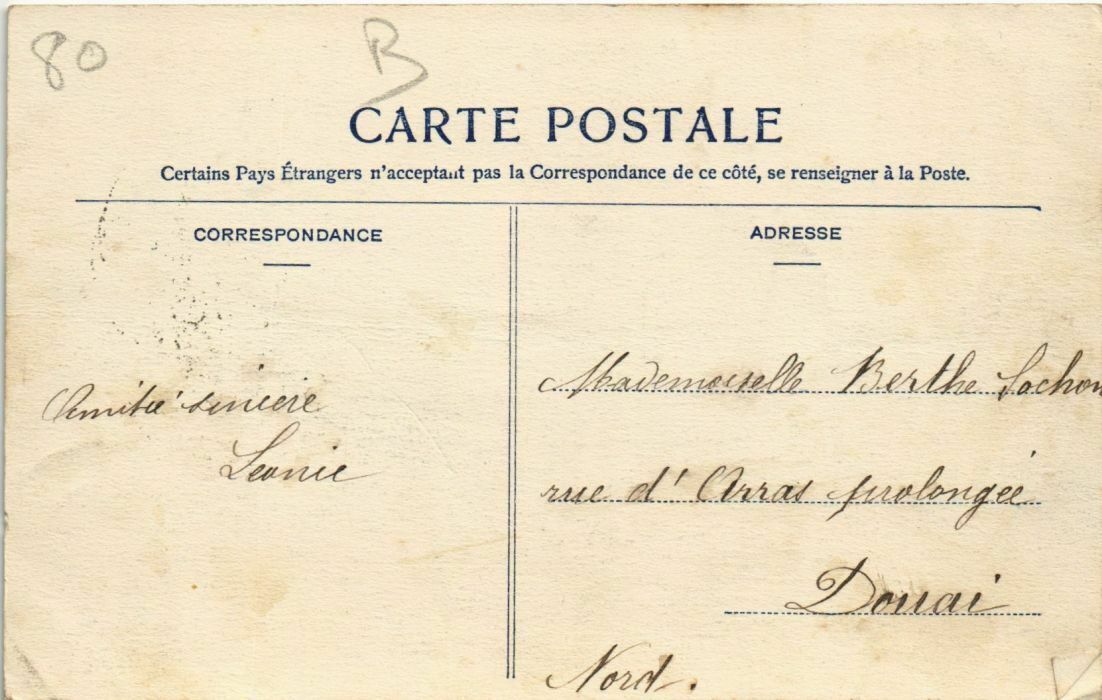 80
B
CARTE POSTALE
Certains Pays Étrangers n'acceptant pas la Correspondance de ce côté, se renseigner à la Poste.
CORRESPONDANCE
Amitié sincère
Leonie
ADRESSE
Mademoiselle Berthe
rue d'Arras prolongée
Douai
Nord.